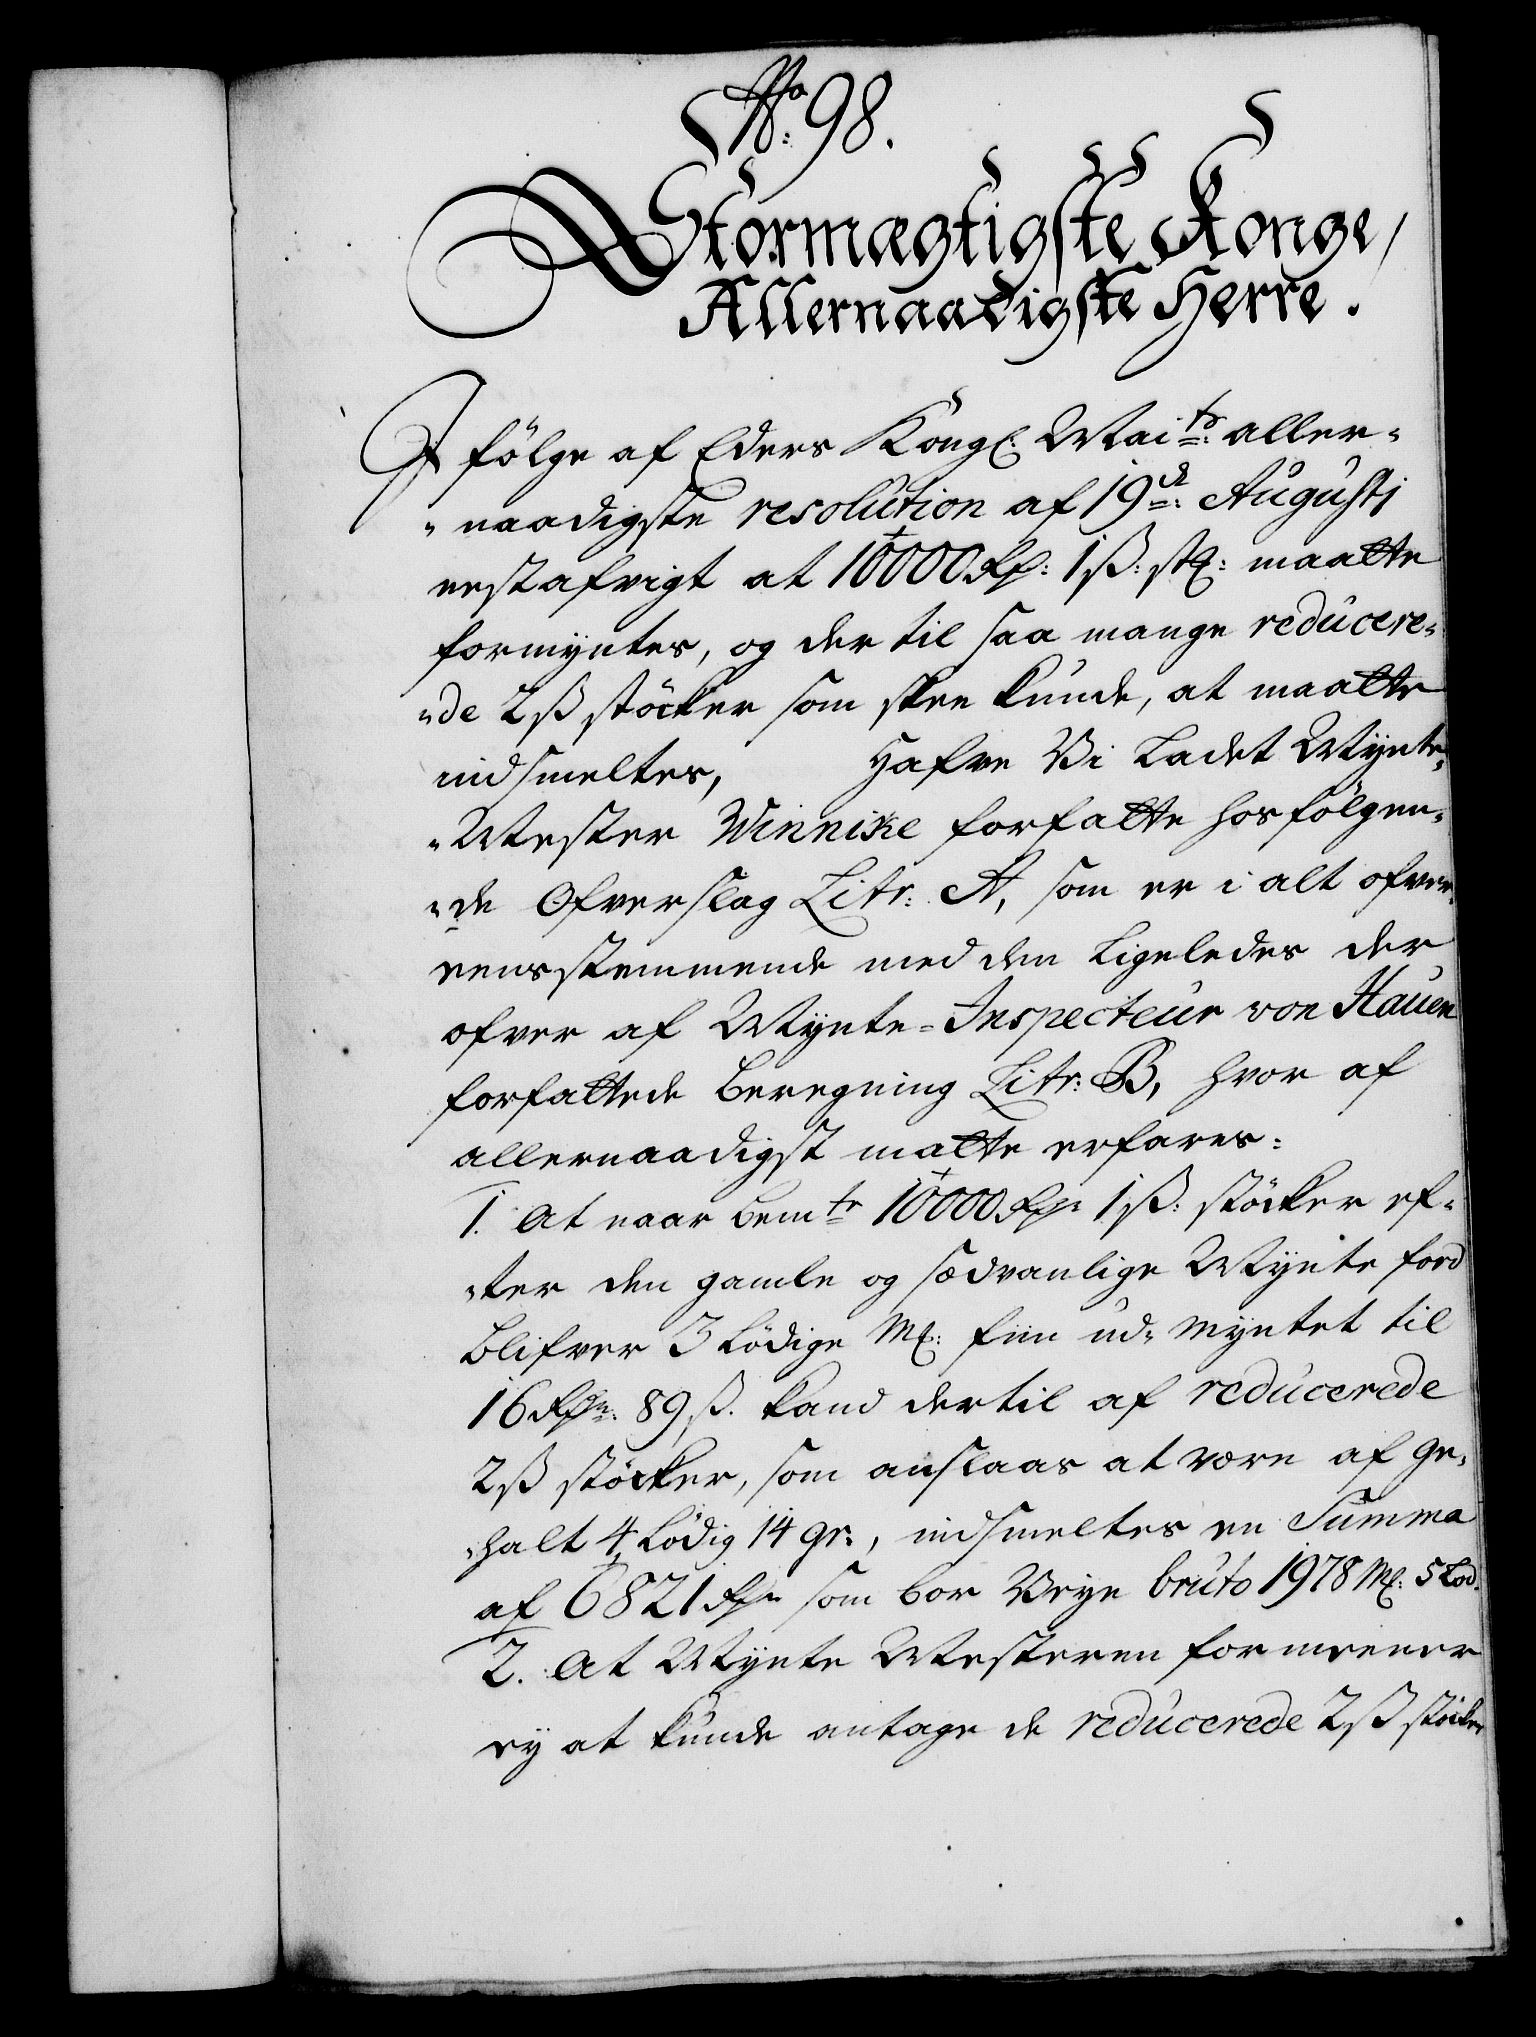 No: 98.
Stormægtigste Konge,
Allernaadigste Herre.
I følge af Eders Kongl: Mai:ts: aller-
"naadigste resolution af 19de: Augusti
nestafvigt at 10000 Rd: 1 ß: st: maatte
formyntes, og der til saa mange reducere-
"de 2 ß stöcker som skee kunde, at maatte
indsmeltes, Hafve Vi ladet Mynte-
"Mester Winnike forfatte hosfölgen-
"de Ofverslag Litr: A, som er i alt ofver-
eensstemmende med den ligeledes der
ofver af Mynte-Inspecteur von Hauen
forfattede beregning Litr: B, hvor af
allernaadigst matte erfares:
1. At naar bemte 10000 Rd: 1 ß: stöcker ef-
"ter den gamle og sædvanlige Mynte fod
blifver 3 lödige Mk: fiin ud-myntet til
16 Rdr: 89 ß. kand dertil af reducerede
2 ß stöcker, som anslaas at være af ge-
"halt 4 Lödig 14 gr:, indsmeltes en Summa
af 6821 Rdr som bör Veye bruto 1978 Mk: 5 Lod.
2. At Mynte Mesteren formeener
ey at kunde antage de reducerede 2 ß stöcker